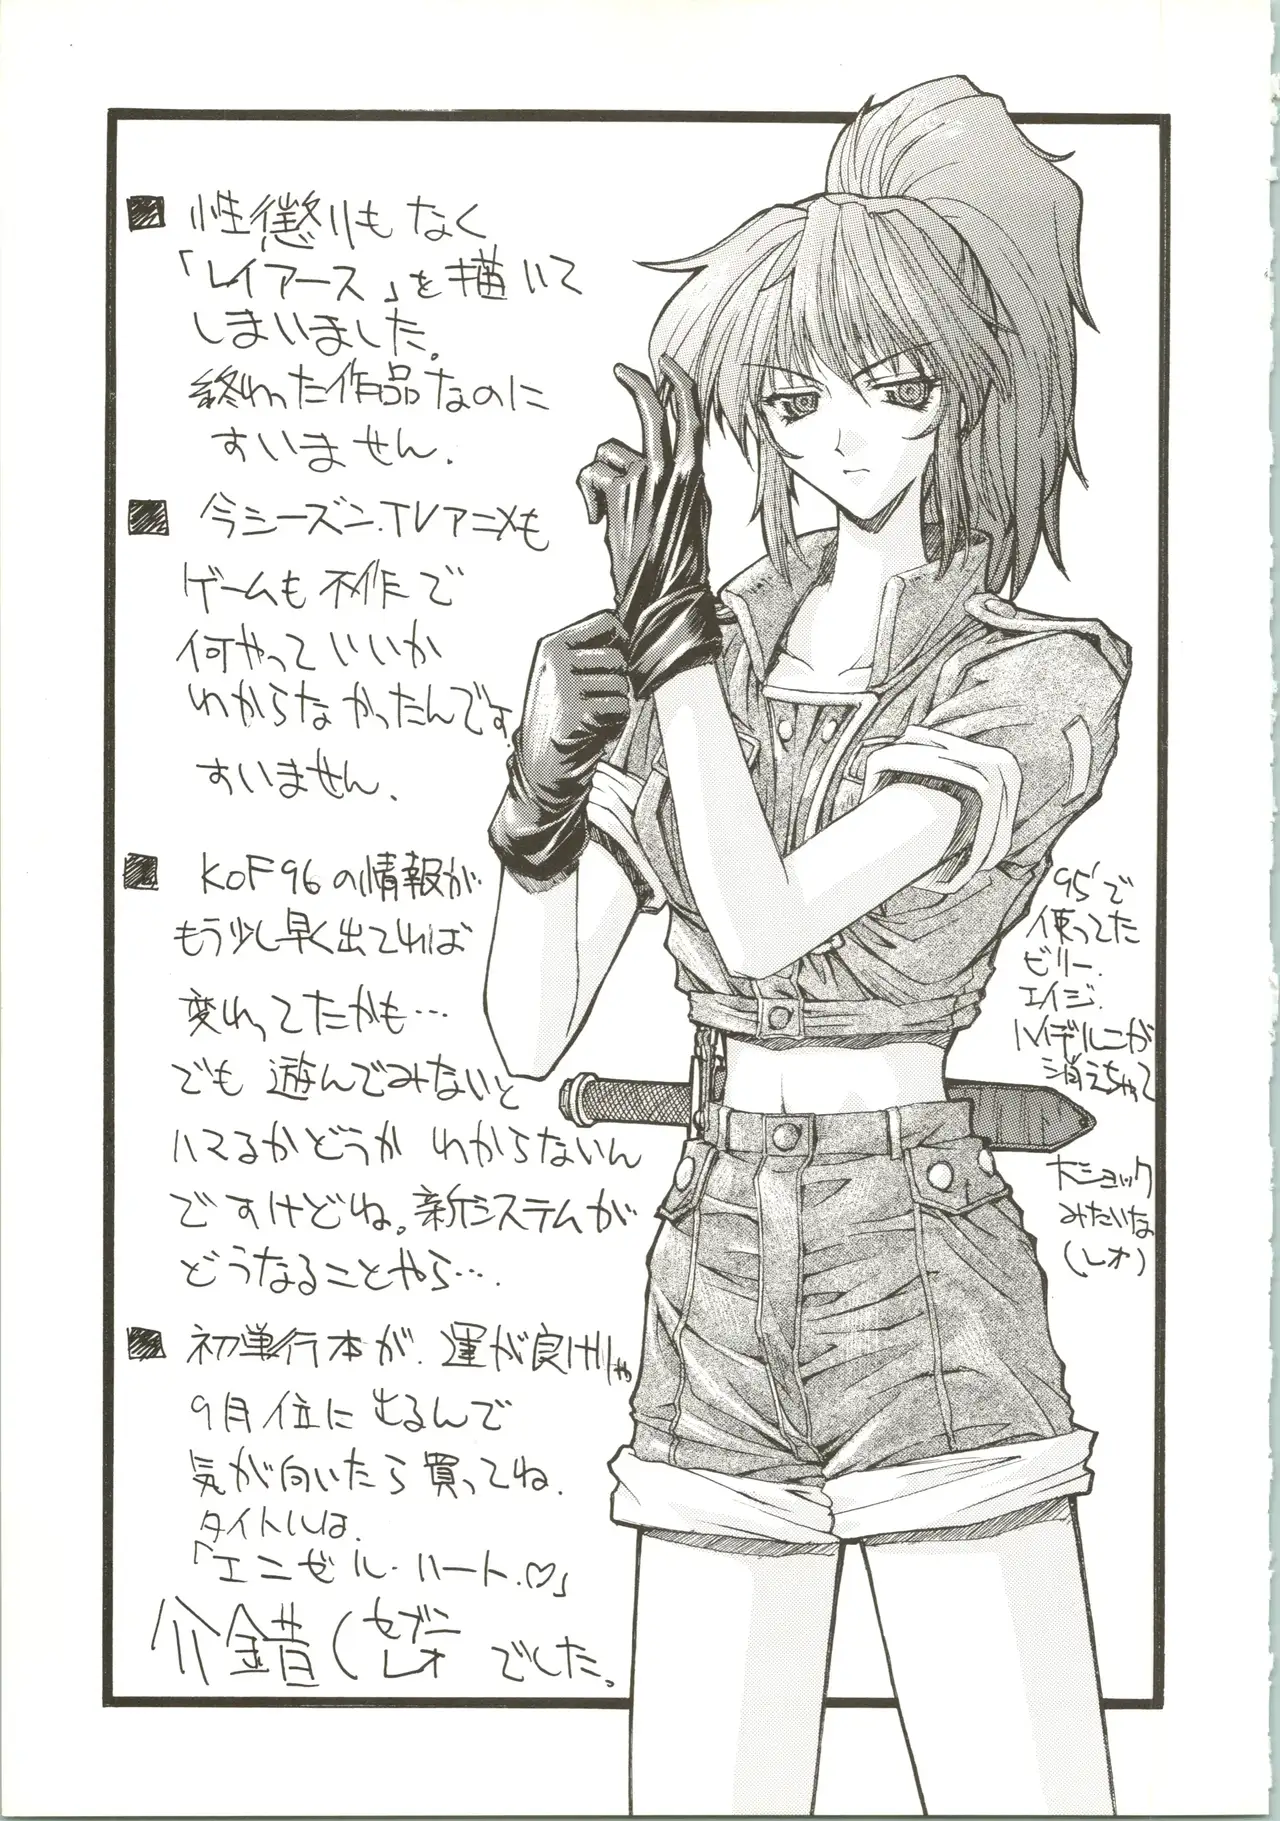 ■ 性懲りもなく
「レイアース」を描いて
しまいました。
終わった作品なのに
すいません.
■ 今シーズン.TVアニメも
ゲームも不作で
何やっていいか
わからなかったんです.
すいません.
■ KOF96の情報が
もう少し早く出てれば
変わってたかも…
でも遊んでみないと
ハマるかどうか わからないん
ですけどね。新システムが
どうなることやら….
■ 初単行本が.運が良けりゃ
9月位に出るんで
気が向いたら買ってね.
タイトルは.
「エンゼル.ハート.♡」
介錯(セブン
レオ でした。
95'で
使ってた
ビリー.
エイジ.
ハイデルンが
消えちゃって
大ショック
みたいな
(レオ)